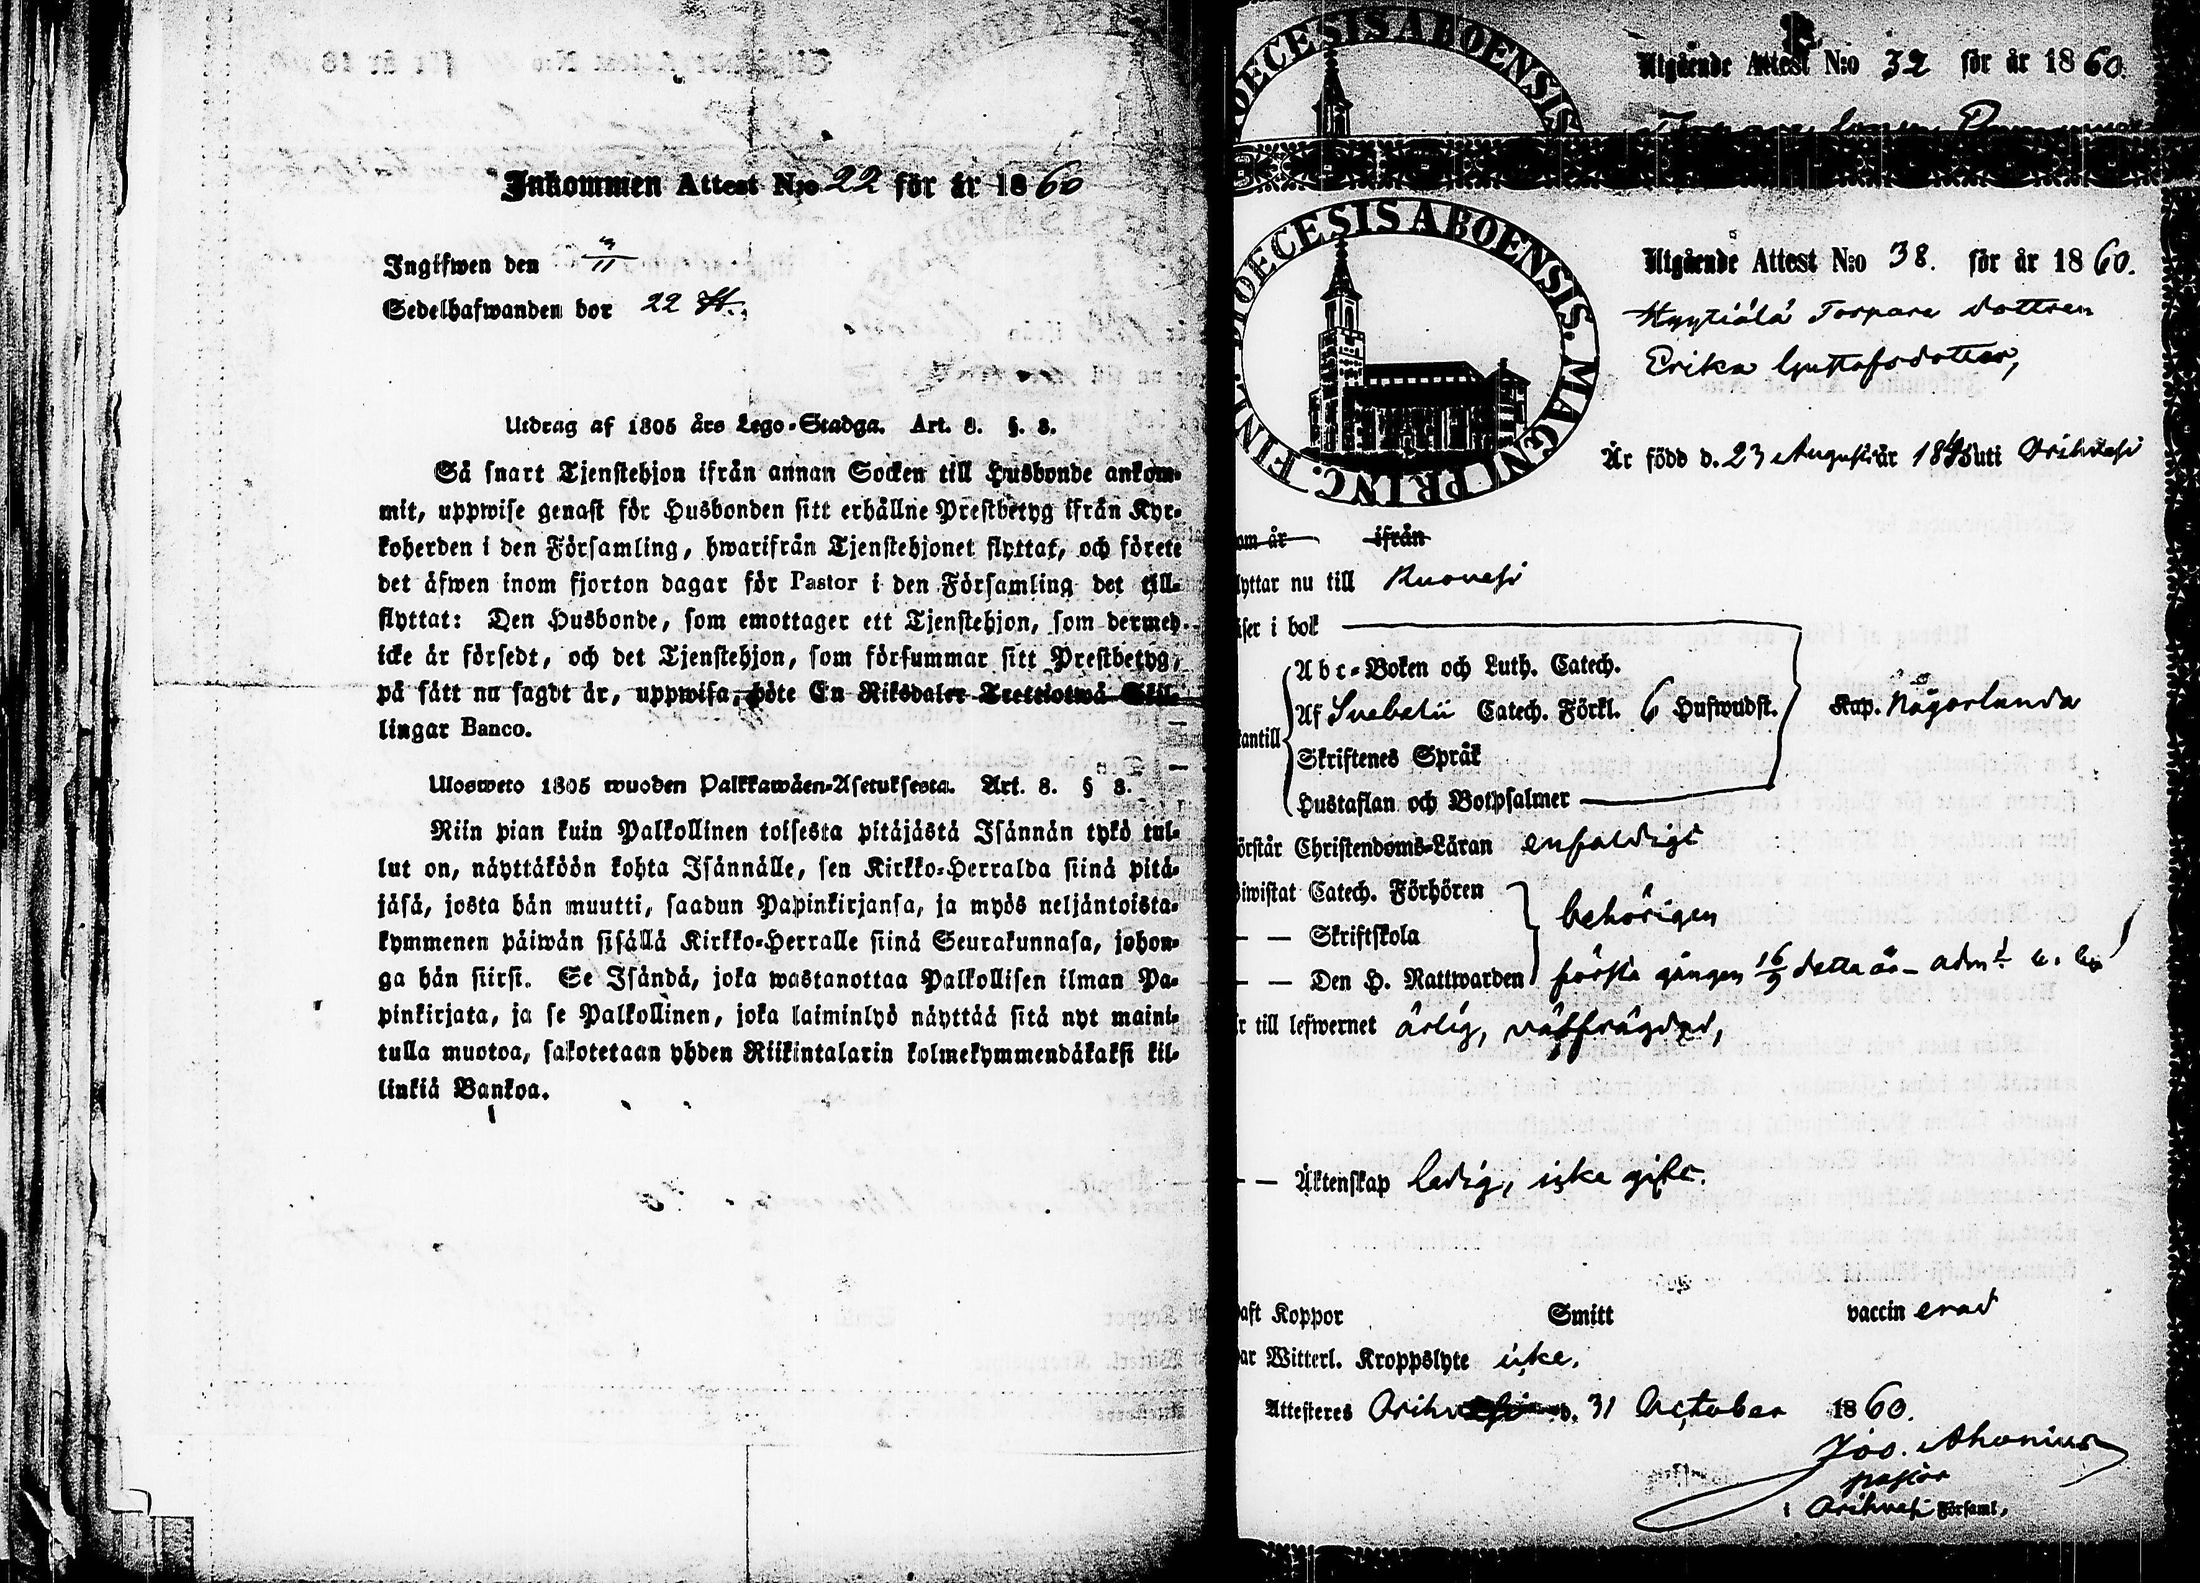 Inkommen Attest N:o 22 för år 1860
Ingifwen den 3/11
Sedelhafwanden bor 22
Utdrag af 1805 års Lego-Stadga. Art. 8. §. 8.
Så snart Tjenstehjon ifrån annan Socken till Husbonde ankom-
mit, uppwise genast för Husbonden sitt erhållne Prestbetyg ifrån Kyr-
koherden i den Församling, hwarifrån Tjenstehjonet flyttat, och förete
det äfwen inom fjorton dagar för Pastor i den Församling det till-
flyttat: Den Husbonde, som emottager ett Tjenstehjon, som dermed
icke är försedt, och det Tjenstehjon, som försummar sitt Prestbetyg,
på sätt nu sagdt är, uppwisa, böte En Riksdaler Trettiotwå Skil-
lingar Banco.
Ulosweto 1805 wuoden Palkkawäen-Asetuksesta. Art. 8. § 8.
Niin pian kuin Palkollinen toisesta pitäjästä Isännän tykö tul-
lut on, näyttäköön kohta Isännälle, sen Kirkko-Herralda siinä pitä-
jäsä, josta hän muutti, saadun Papinkirjansa, ja myös neljäntoista-
kymmenen päiwän sisällä Kirkko-Herralle siinä Seurakunnasa, johon-
ga hän siirsi. Se Isändä, joka wastanottaa Palkollisen ilman Pa-
pinkirjata, ja se Palkollinen, joka laiminlyö näyttää sitä nyt maini-
tulla muotoa, sakotetaan yhden Riikintalarin kolmekymmendäkaksi kil-
linkiä Bankoa.
DIOECESIS ABOENSIS
Utgående Attest N:o 32 för år 1860.
DIOECESIS ABOENSIS. MAGNI PRINC. FINL.
Utgående Attest N:o 38. för år 1860.
Hyytiälä Torpare dottren
Erika Gustafsdotter,
Är född d. 23 Augusti år 1845 uti Orihvesi
om år ifrån
lyttar nu till Ruovesi
iser i bok
Abc-Boken och Luth. Catech.
Af Svebelii Catech. Förkl. 6 Hufwudst. Kap. någorlunda
antill
Skriftenes Språk
Hustaflan och Botpsalmer
örstår Christendoms-Läran enfaldigt
iwistat Catech. Förhören
behörigen
— — Skriftskola
— — Den H. Nattwarden första gången 16/9 detta år
r till lefwernet ärlig, välfrägdad,
— — Äktenskap ledig, icke gift.
aft Koppor Smitt vaccinerad
ar Witterl. Kroppslyte icke.
Attesteras Orihvesi d. 31 October 1860.
Jos. Ahonius
pastor
i Orihvesi Församl,